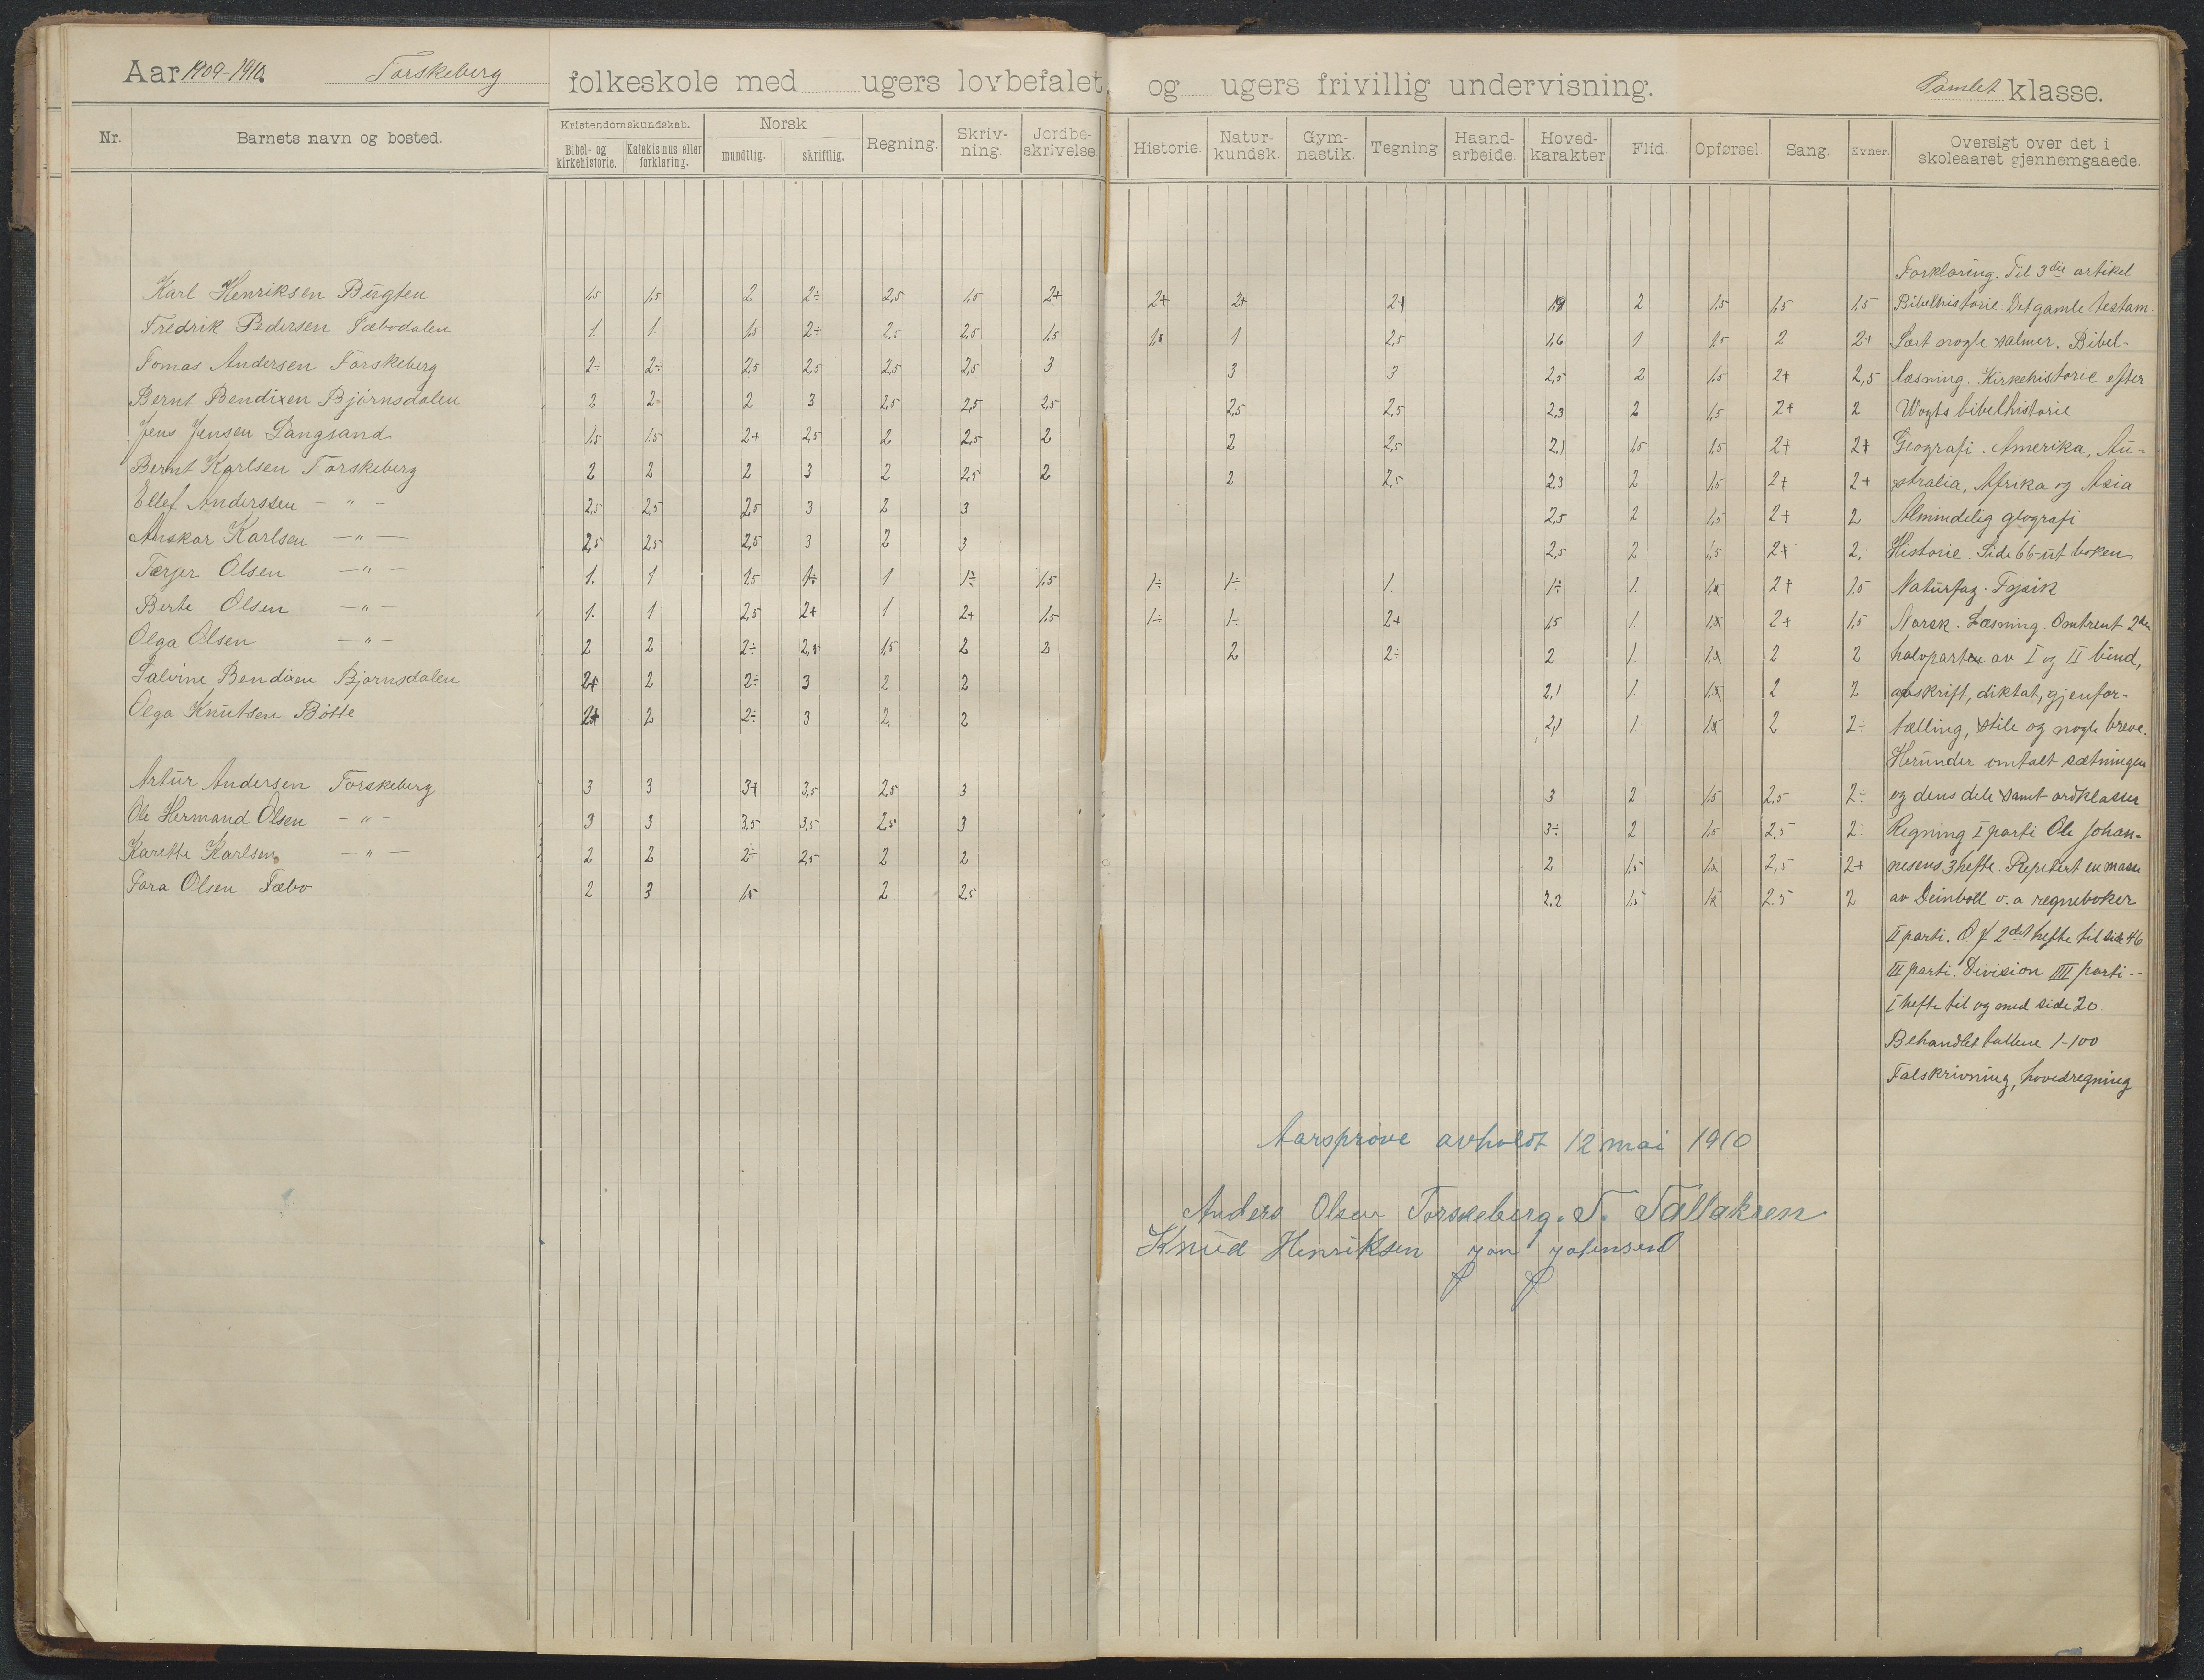 Aar 1909-1910. Torskeberg folkeskole med ugers lovbefalet, og ugers frivillig undervisning. Samlet klasse.
Nr. Barnets navn og bosted. Kristendomskundskab. Bibel- og kirkehistorie. Katekismus eller forklaring. Norsk mundtlig. skriftlig. Regning. Skriv-ning. Jordbe-skrivelse Historie. Natur-kundsk. Gym-nastik. Tegning Haand-arbeide. Hoved-karakter Flid. Opførsel Sang. Evner. Oversigt over det i skoleaaret gjennemgaaede.
Forklaring. Til 3die artikel
Karl Henriksen Bugten 1,5 1,5 2 2÷ 2,5 1,5 2+ 2+ 2+ 2+ 1,9 2 1,5 1,5 1,5 Bibelhistorie. Det gamle testam.
Fredrik Pedersen Fæbodalen 1. 1. 1,5 2÷ 2,5 2,5 1,5 1,5 1 2,5 1,6 1 1,5 2 2+ Lært nogle salmer. Bibel-
Tomas Andersen Torskeberg 2÷ 2÷ 2,5 2,5 2,5 2,5 3 3 3 2,5 2 1,5 2+ 2,5 læsning. Kirkehistorie efter
Bernt Bendixen Bjørnsdalen 2 2 2 3 2,5 2,5 2,5 2,5 2,5 2,3 2 1,5 2+ 2 Wogts bibelhistorie
Jens Jensen Langsand 1,5 1,5 2+ 2,5 2 2,5 2 2 2,5 2,1 1,5 1,5 2+ 2+ Geografi. Amerika, Au-
Bernt Karlsen Torskeberg 2 2 2 3 2 2,5 2 2 2,5 2,3 2 1,5 2+ 2+ stralia, Afrika og Asia
Ellef Anderssen - " - 2,5 2,5 2,5 3 2 3 2,5 2 1,5 2+ 2 Almindelig geografi
Anskar Karlsen - " - 2,5 2,5 2,5 3 2 3 2,5 2 1,5 2+ 2. Historie. Side 66-ut boken
Terjer Olsen - " - 1. 1 1,5 1÷ 1 1÷ 1,5 1÷ 1÷ 1. 1÷ 1. 1,5 2+ 1,5 Naturfag. Fysik
Berte Olsen - " - 1. 1 2,5 2+ 1 2+ 1,5 1÷ 1÷ 2+ 1,5 1. 1,5 2+ 1,5 Norsk. Læsning. Omtrent 2den
Olga Olsen - " - 2 2 2÷ 2,5 1,5 2 2 2 2÷ 2 1. 1,5 2 2 halvparten av I og II bind,
Salvine Bendixen Bjørnsdalen 2+ 2 2÷ 3 2 2 2,1 1. 1,5 2 2 avskrift, diktat, gjenfor-
Olga Knutsen Bøtte 2+ 2 2÷ 3 2. 2 2,1 1. 1,5 2 2÷ tælling, stile og nogle breve.
Herunder omtalt sætningen
Artur Andersen Torskeberg 3 3 3+ 3,5 2,5 3 3 2 1,5 2,5 2÷ og dens dele samt ordklasser
Ole Hermand Olsen - " - 3 3 3,5 3,5 2,5 3 3÷ 2 1,5 2,5 2÷ Regning I parti Ole Johan-
Karette Karlsen - " - 2 2 2÷ 2,5 2 2 2 1,5 1,5 2,5 2+ nesens 3 hefte. Repetert en masse
Sara Olsen Fæbo 2 3 1,5 2 2,5 2.2 1,5 1,5 2.5 2 av Deinboll o. a regneboker
II parti. O J 2det hefte til side 46
III parti. Division IIII parti --
I hefte til og med side 20.
Behandlet tallene 1-100
Talskrivning, hovedregning
Aarsprøve avholdt 12 mai 1910
Anders Olsen Torskeberg. T. Tallaksen
Knud Henriksen Jon Johensen